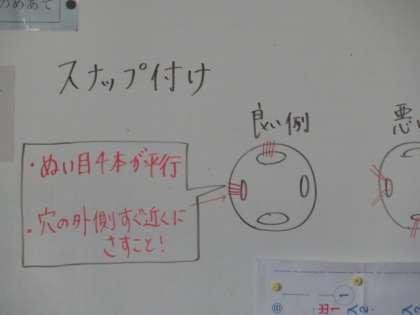 のめあて
スナップ付け
良い例
悪い
・ぬい目4本が平行
・穴の外側すぐ近くに
さすこと!
①